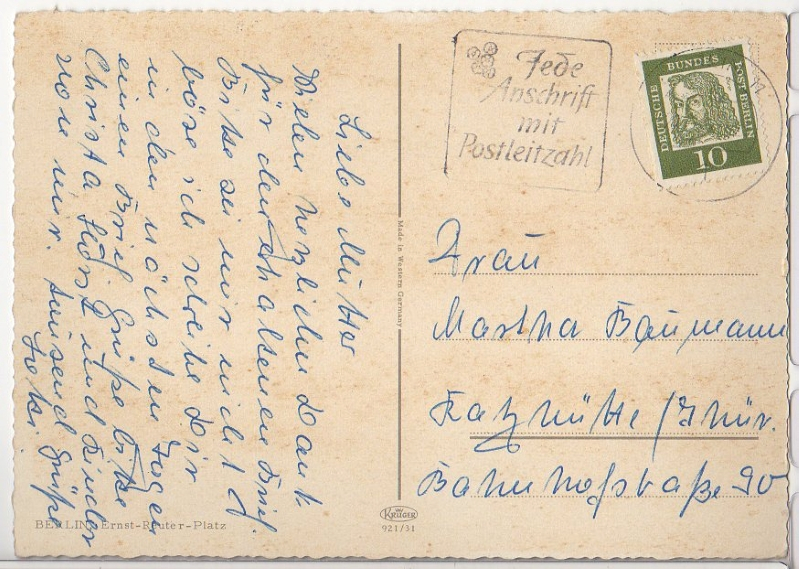 Liebe Mutter
Vielen herzlichen Dank
für den erhaltenen Brief.
Bitte sei mir nicht
böse ich schreibe Dir
in den nächsten Tagen
einen Brief. Grüße bitte
Christa Horst und Kinder
von mir. tausend Grüße
Jede
Anschrift
mit
Postleitzahl
DEUTSCHE BUNDES POST BERLIN
10
Frau
Martha Baumann
Katzhütte/Thür.
Bahnhofstraße 90
Made in Western Germany
BERLIN, Ernst-Reuter-Platz
KRÜGER
921/31